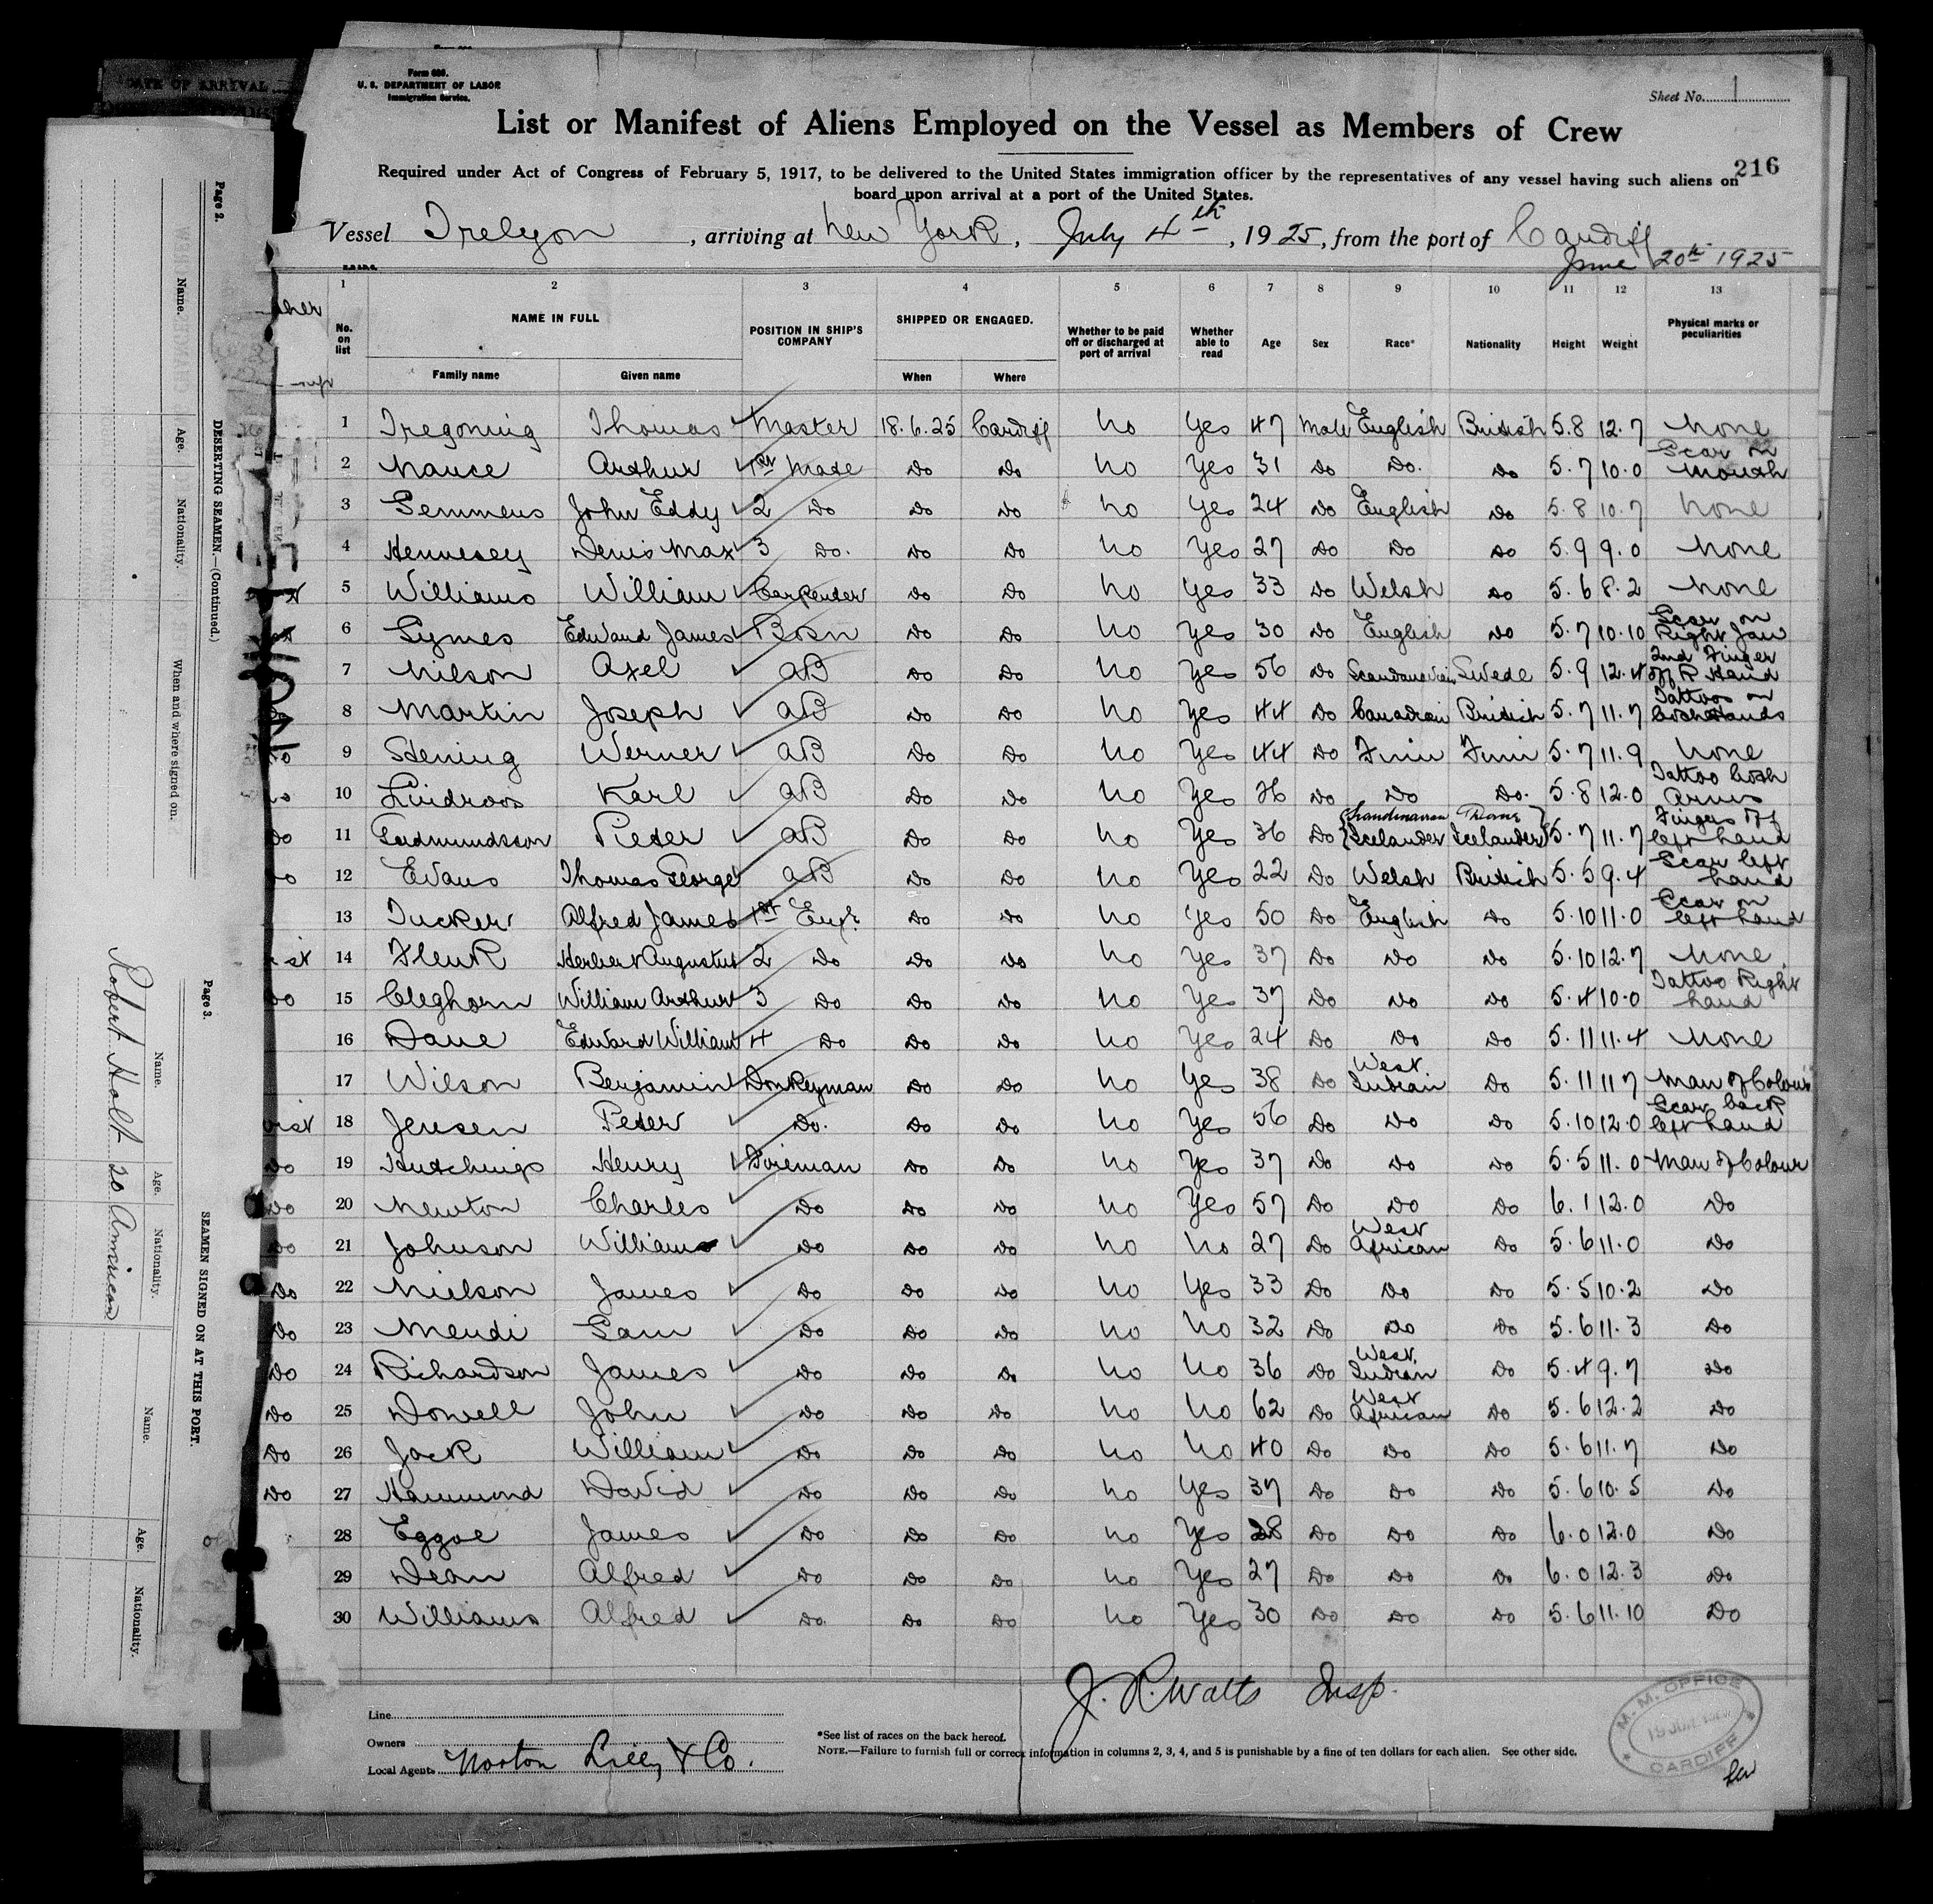 Form 680.
U. S. DEPARTMENT OF LABOR
Immigration Service.
Sheet No. 1
List or Manifest of Aliens Employed on the Vessel as Members of Crew
216
Required under Act of Congress of February 5, 1917, to be delivered to the United States immigration officer by the representatives of any vessel having such aliens on
board upon arrival at a port of the United States.
Vessel Trelyon, arriving at New York, July 4th, 1925, from the port of Cardiff
June 20th 1925
1 2 3 4 5 6 7 8 9 10 11 12 13
No. on list NAME IN FULL POSITION IN SHIP'S COMPANY SHIPPED OR ENGAGED. Whether to be paid off or discharged at port of arrival Whether able to read Age Sex Race* Nationality Height Weight Physical marks or peculiarities
Family name Given name When Where
1 Tregoning Thomas Master 18.6.25 Cardiff No Yes 47 Male English British 5.8 12.7 None
2 Nance Arthur 1st Mate Do Do No Yes 31 Do Do. Do 5.7 10.0 Scar on Mouth
3 Gemmens John Eddy 2 Do Do Do No Yes 24 Do English Do 5.8 10.7 None
4 Hennesey Denis Max 3 Do. Do Do No Yes 27 Do Do Do 5.9 9.0 None
5 Williams William Carpenter Do Do No Yes 33 Do Welsh Do 5.6 8.2 None
6 Symes Edward James Bosn Do Do No Yes 30 Do English Do 5.7 10.10 Scar on Right Jaw
7 Nilson Axel AB Do Do No Yes 56 Do Scandanavian Swede 5.9 12.4 2nd Finger off R Hand
8 Martin Joseph AB Do Do No Yes 44 Do Canadian British 5.7 11.7 Tattoos on both Hands
9 Stening Werner AB Do Do No Yes 44 Do Finn Finn 5.7 11.9 None
10 Lindroos Karl AB Do Do No Yes 26 Do Do Do. 5.8 12.0 Tattoo both Arms
11 Gudmundsson Peter AB Do Do No Yes 36 Do Scandinavian Icelander Icelander 5.7 11.7 Fingers off left hand
12 Evans Thomas George AB Do Do No Yes 22 Do Welsh British 5.5 9.4 Scar left hand
13 Tucker Alfred James 1st Engr Do Do No Yes 50 Do English Do 5.10 11.0 Scar on left hand
14 Fleur Herbert Augustus 2 Do Do Do No Yes 37 Do Do Do 5.10 12.7 None
15 Cleghorn William Arthur 3 Do Do Do No Yes 37 Do Do Do 5.4 10.0 Tattoo Right hand
16 Dane Edward William 4 Do Do Do No Yes 24 Do Do Do 5.11 11.4 None
17 Wilson Benjamin Donkeyman Do Do No Yes 38 Do West Indian Do 5.11 11 7 Man of Colour
18 Jensen Peter Do. Do Do No Yes 56 Do Do Do 5.10 12.0 Scar back left hand
19 Hutchings Henry Fireman Do Do No Yes 37 Do Do Do 5.5 11.0 Man of Colour
20 Newton Charles Do Do Do No Yes 57 Do Do Do 6.1 12.0 Do
21 Johnson William Do Do Do No No 27 Do West African Do 5.6 11.0 Do
22 Nielson James Do Do Do No Yes 33 Do Do Do 5.5 10.2 Do
23 Mendi Sam Do Do Do No No 32 Do Do Do 5.6 11.3 Do
24 Richardson James Do Do Do No No 36 Do West Indian Do 5.4 9.7 Do
25 Dowell John Do Do Do No No 62 Do West African Do 5.6 12.2 Do
26 Jack William Do Do Do No No 40 Do Do Do 5.6 11.7 Do
27 Hammond David Do Do Do No Yes 37 Do Do Do 5.6 10.5 Do
28 Eggoe James Do Do Do No Yes 28 Do Do Do 6.0 12.0 Do
29 Dean Alfred Do Do Do No Yes 27 Do Do Do 6.0 12.3 Do
30 Williams Alfred Do. Do Do No Yes 30 Do Do Do 5.6 11.10 Do
J. R. Watts Insp.
Line
Owners
Local Agents Norton Lilly & Co.
*See list of races on the back hereof.
NOTE.—Failure to furnish full or correct information in columns 2, 3, 4, and 5 is punishable by a fine of ten dollars for each alien. See other side.
M. M. OFFICE
CARDIFF
DATE OF ARRIVAL
Page 2.
DESERTING SEAMEN.—(Continued.)
Name. Age. Nationality. When and where signed on.
Page 3.
SEAMEN SIGNED ON AT THIS PORT.
Name. Age. Nationality.
Robert Holt 20 American
Name. Age. Nationality.